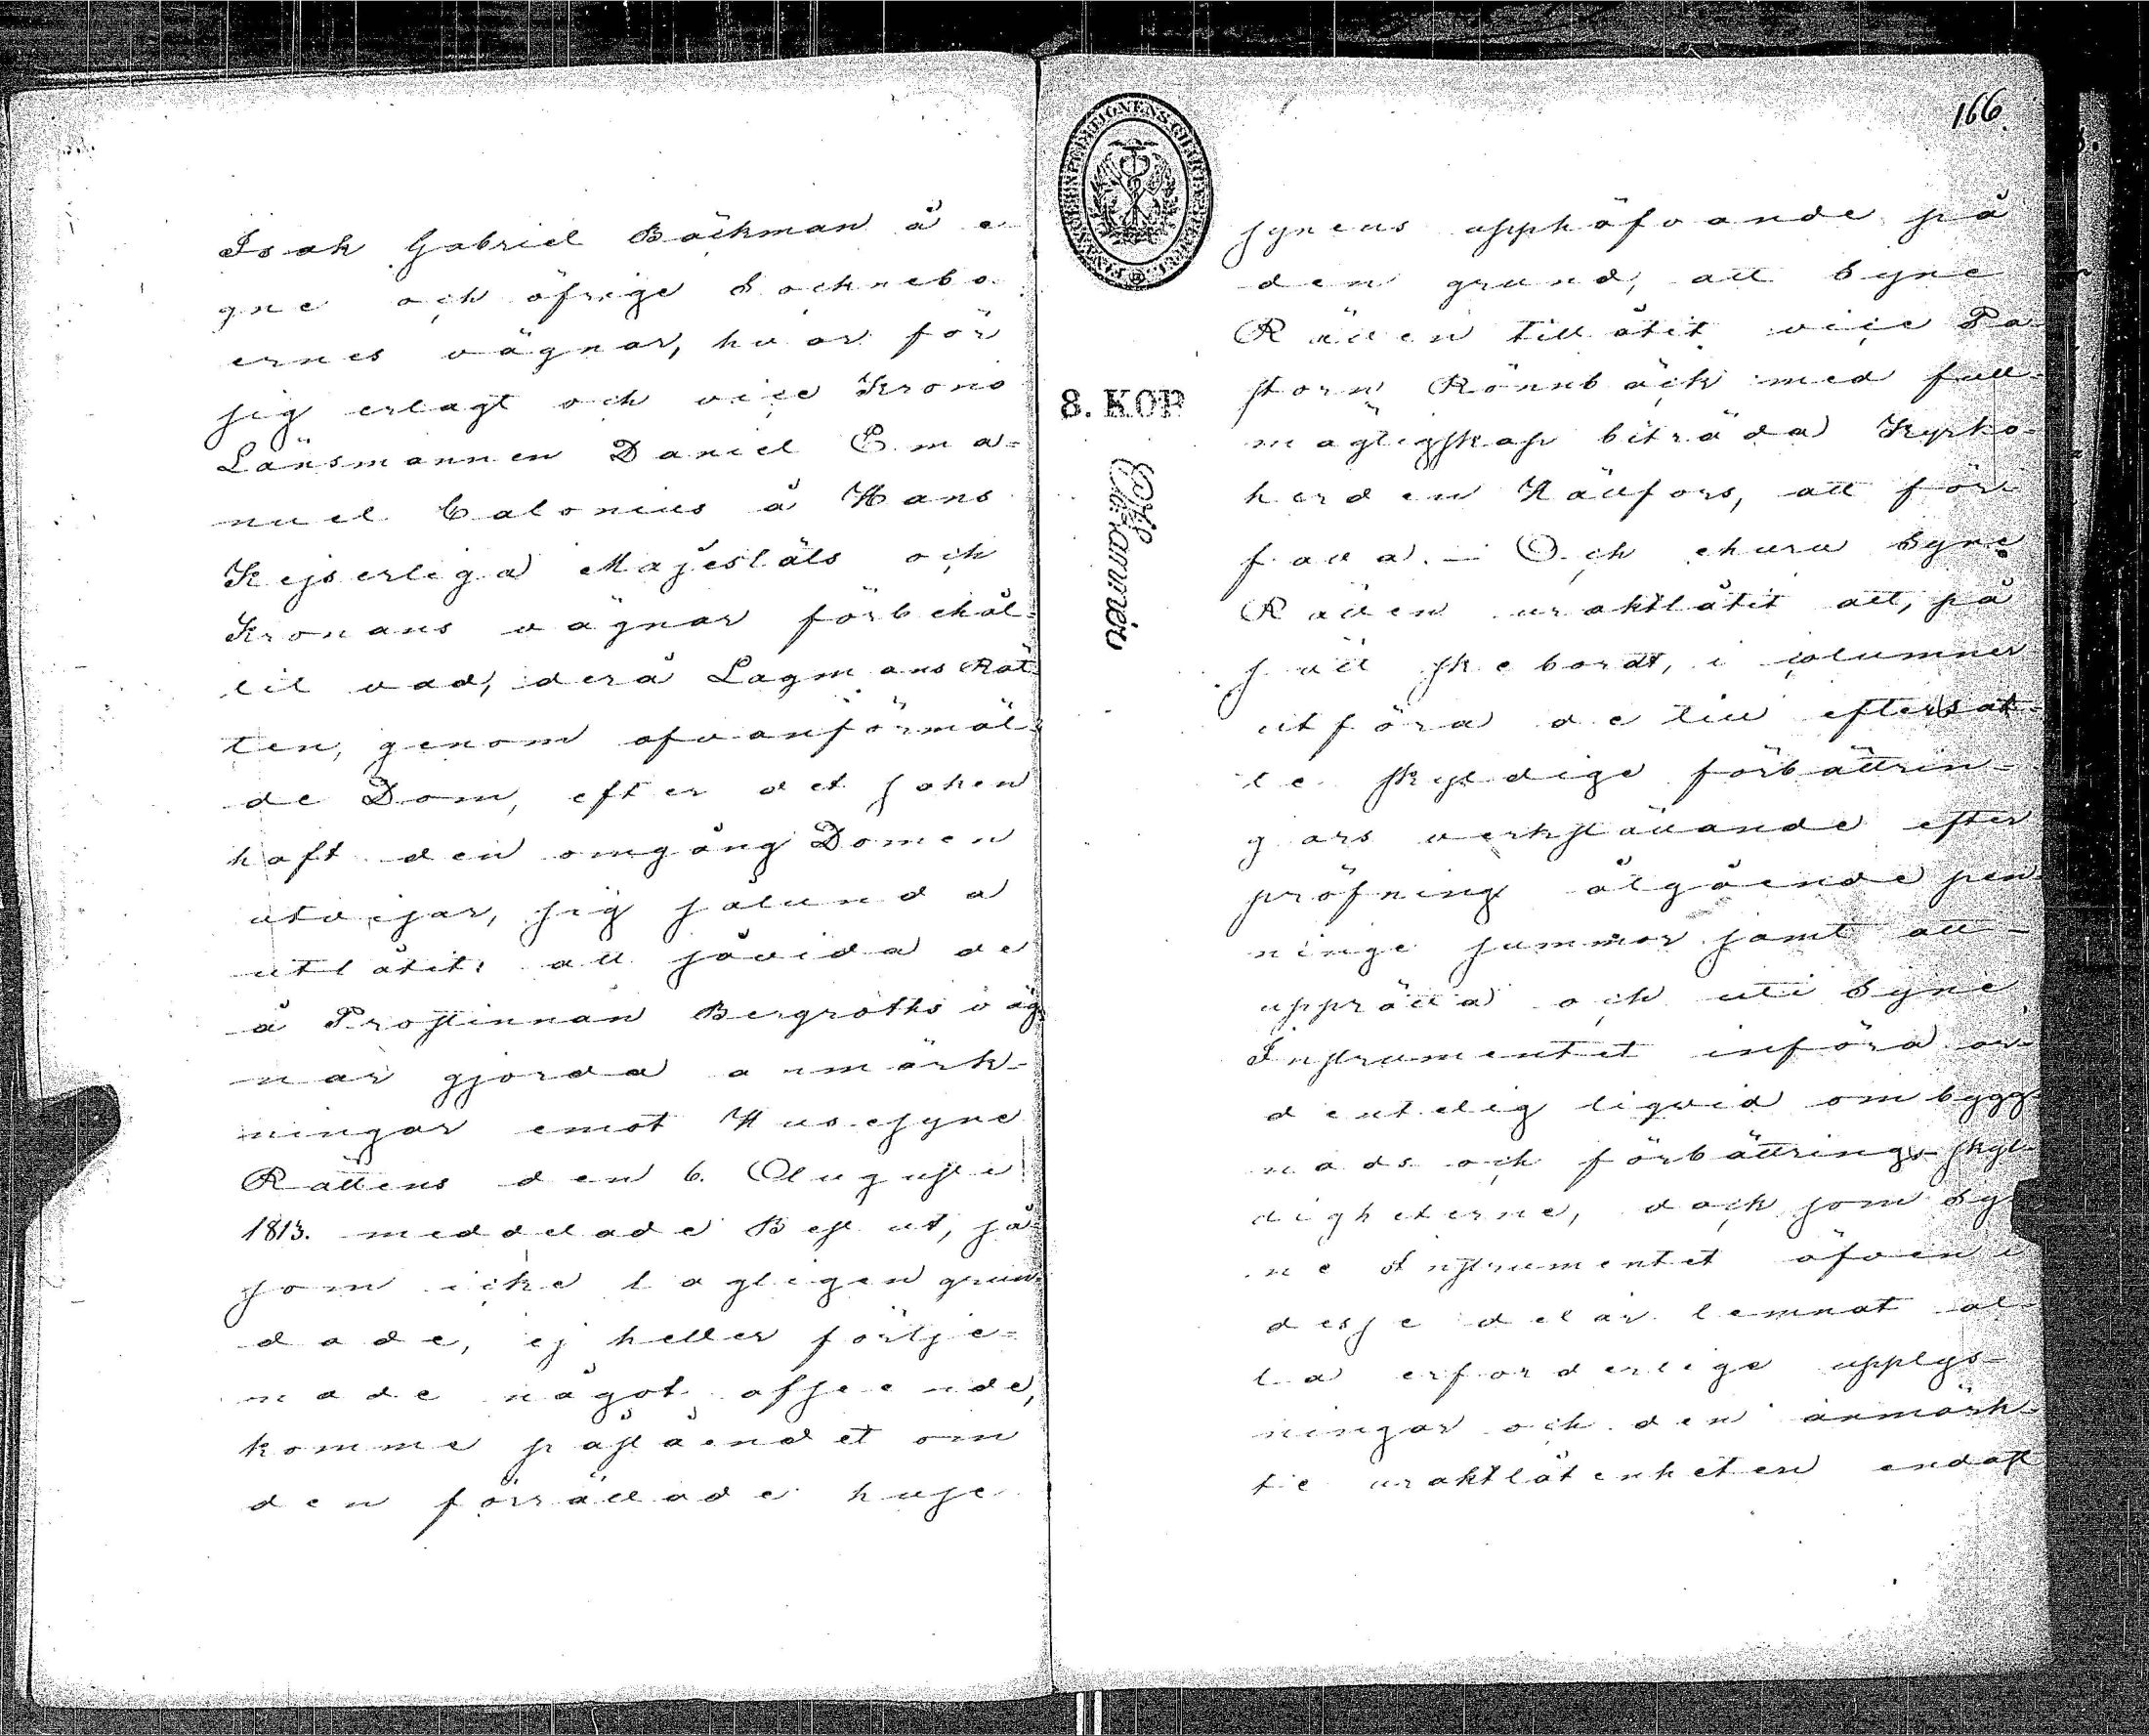 Isak Gabriel Bäckman å e-
gne och öfrige Sochnebo-
ernes vägnar, hvar för
sig erlagt och vice Krono
Länsmannen Daniel Ema-
nuel Calonius å Hans
Kejserliga Majestäts och
Kronans vägnar förbehål-
lit vad, derå Lagmans Rät-
ten, genom ofvanförmäl-
de Dom, efter det saken
haft den omgång Domen
utvisar, sig sålunda
utlåtit: att såvida de
å Prostinnan Bergroths väg-
nar gjorda anmärk-
ningar emot Husesyne
Rättens den 6. Augusti
1813. meddelade Beslut, så-
som icke lagligen grun-
dade, ej heller förtje-
nade något afseende,
komme påståendet om
den förrättade huse
166.
synens upphäfvande på
den grund, att Syne
Rätten tillåtit vice Pa-
storn Rönnbäck med full-
mägtigskap biträda Kyrko-
herden Hällfors, att för-
falla. — Och ehuru Syne
Rätten uraktlåtit att, på
sätt ske bordt, i columner
utföra de till eftersat-
te skyldige förbättrin-
gars verkställande efter
pröfning åtgående pen-
ninge summor samt att
upprätta och uti Syne
Instrumentet införa or-
dentelig liqvid om bygg-
nads och förbättrings skyl-
digheterne, dock som Sy-
ne Instrumentet äfven i
desse delar lemnat al-
la erforderlige upplys-
ningar och den anmärk-
te uraktlåtenheten endast
8. KOP